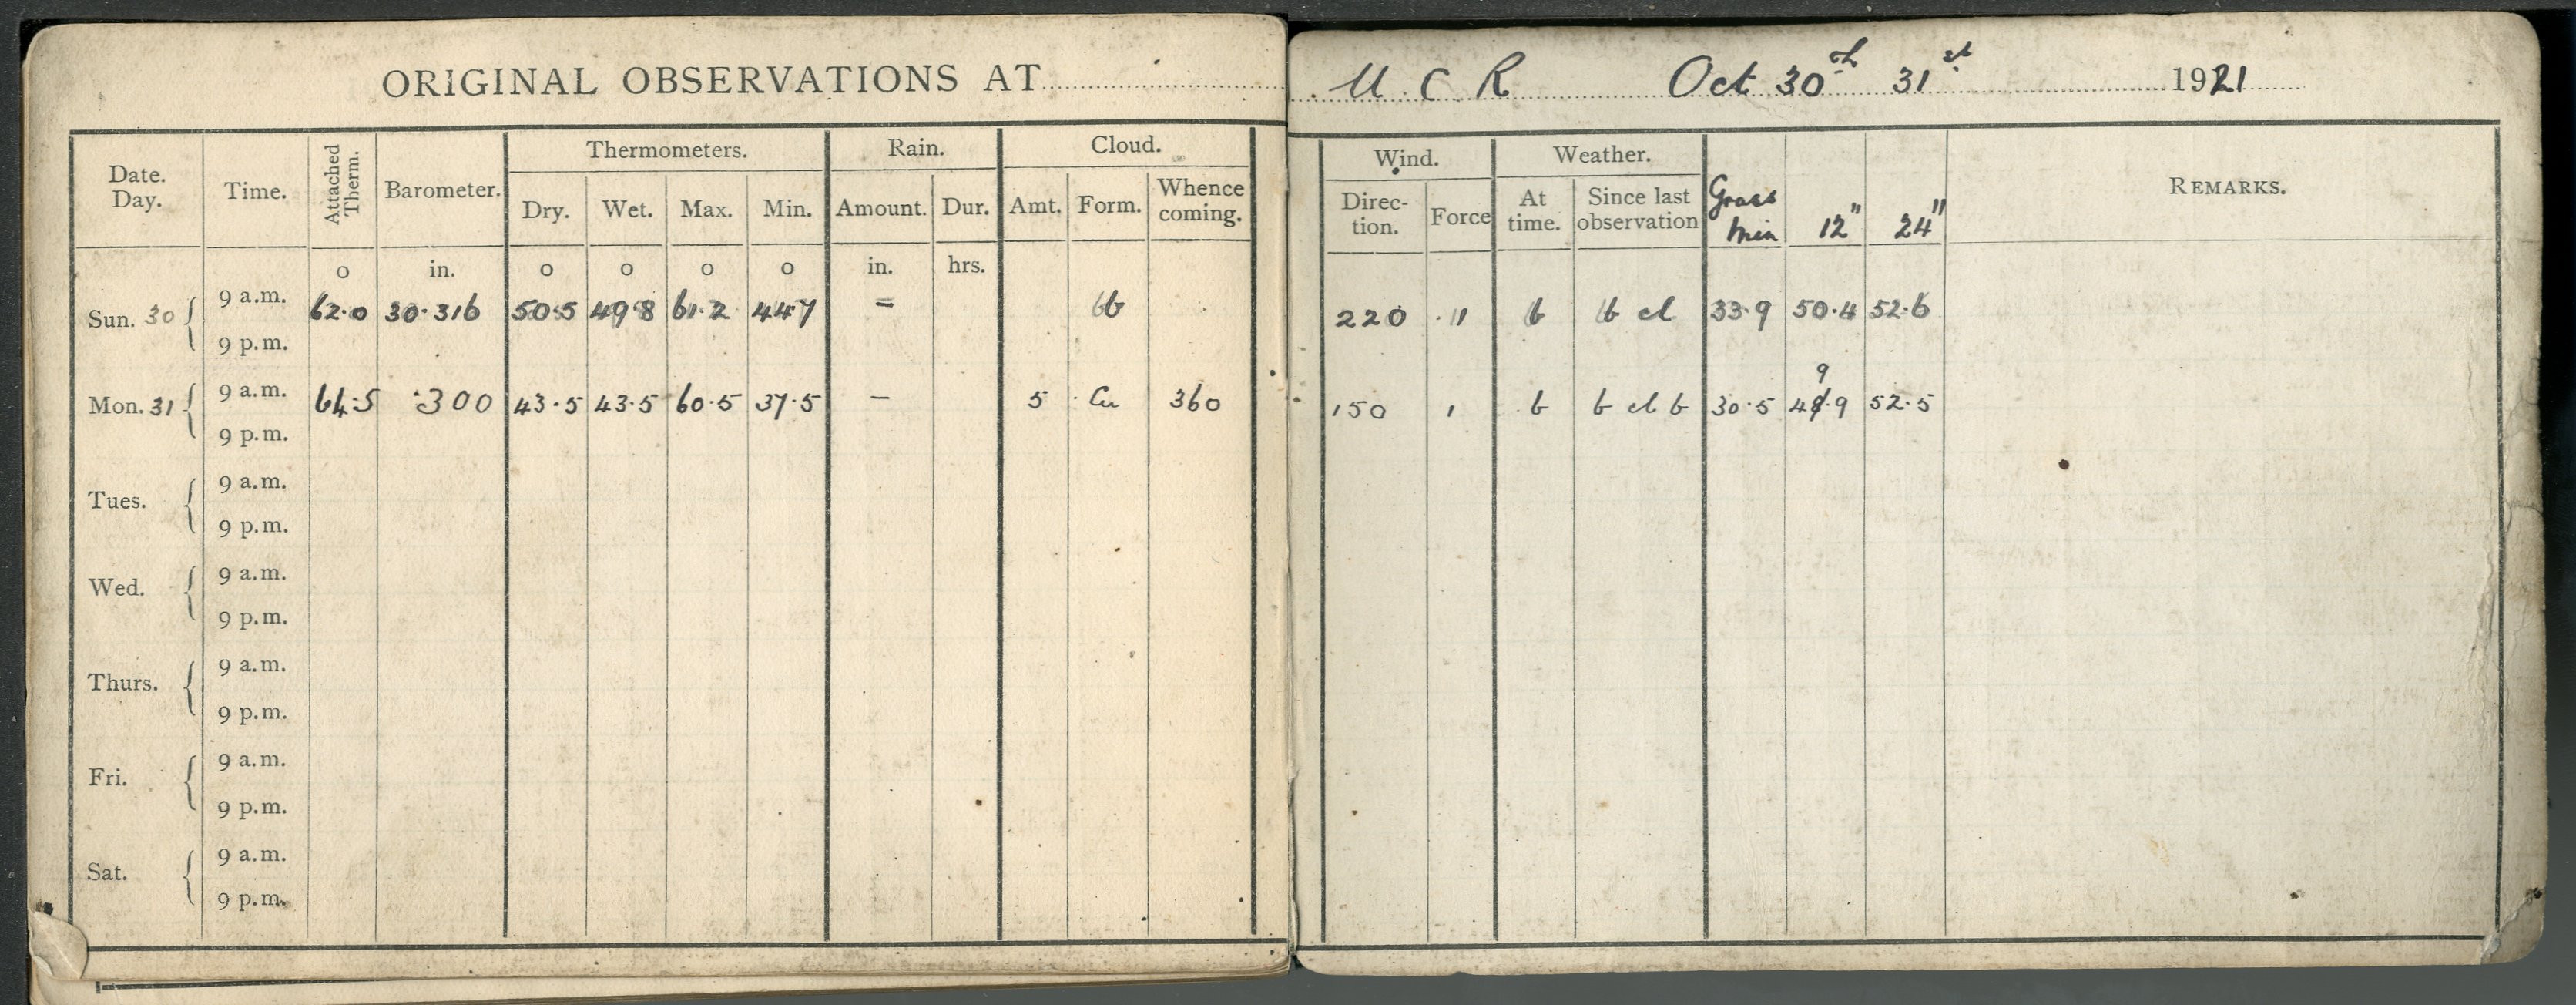 ORIGINAL OBSERVATIONS AT U C R Oct 30th 31st 1921
Thermometers. Rain. Cloud. Wind. Weather.
Date. Day. Time. Attached Therm. Barometer. Dry. Wet. Max. Min. Amount. Dur. Amt. Form. Whence coming. Direc-tion. Force At time. Since last observation Grass min 12" 24" REMARKS.
o in. o o o o in. hrs.
Sun. 30 9 a.m. 62.0 30.316 50.5 49.8 61.2 44.7 – b 220 11 b b cl 33.9 50.4 52.6
9 p.m.
9
Mon. 31 9 a.m. 64.5 .300 43.5 43.5 60.5 37.5 – 5 Cu 360 150 1 b b cl b 30.5 48.9 52.5
9 p.m.
Tues. 9 a.m.
9 p.m.
Wed. 9 a.m.
9 p.m.
Thurs. 9 a.m.
9 p.m.
Fri. 9 a.m.
9 p.m.
Sat. 9 a.m.
9 p.m.